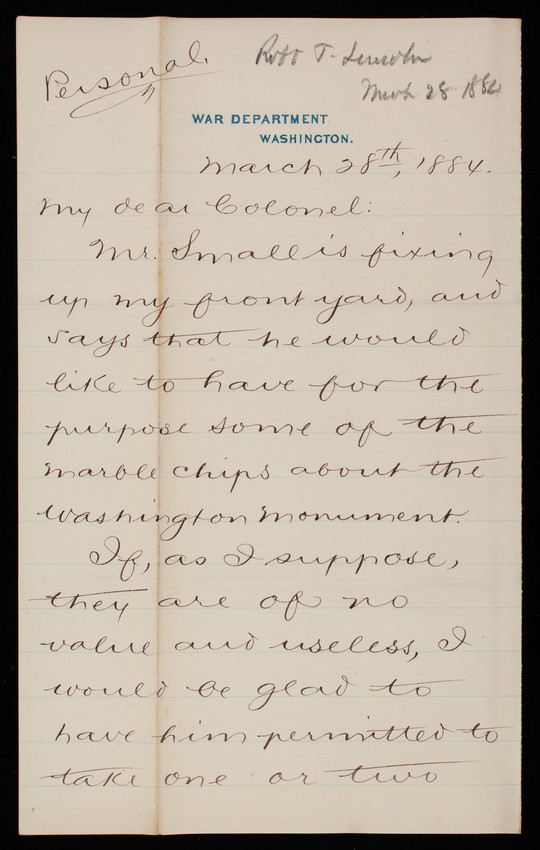 Personal.
Robt T. Lincoln
Mrch 28-1884
WAR DEPARTMENT
WASHINGTON.
March 28th, 1884.
My dear Colonel:
Mr. Small is fixing
up my front yard, and
says that he would
like to have for the
purpose some of the
marble chips about the
Washington Monument.
If, as I suppose,
they are of no
value and useless, I
would be glad to
have him permitted to
take one or two